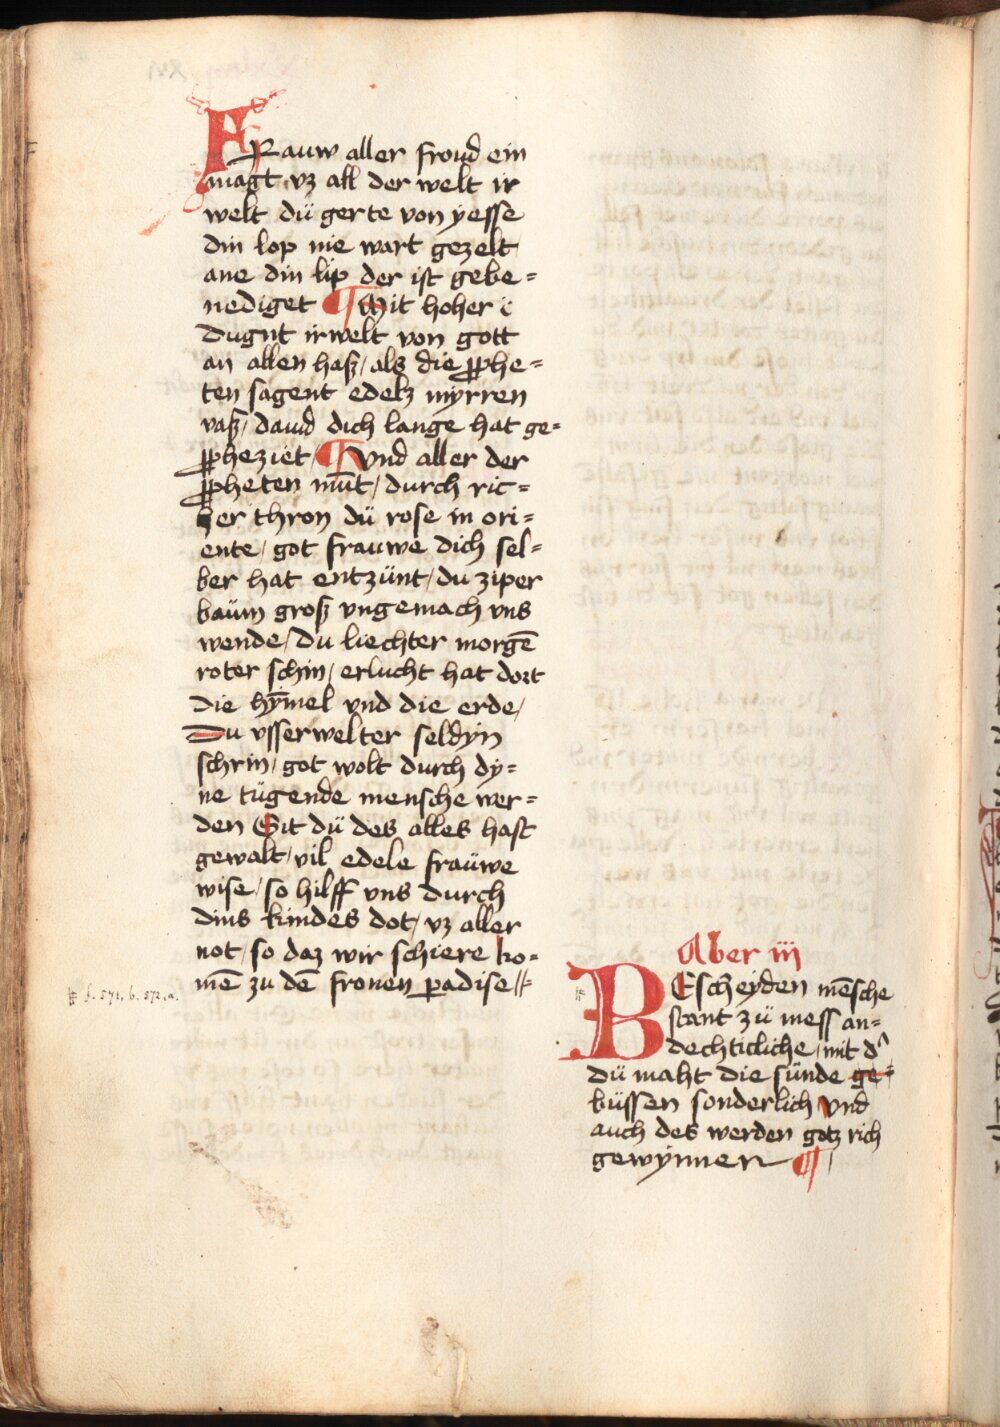 FRauw aller froud ein
magt vz all der welt ir
welt dü gerte von yesse
din lop nie wart gezelt
ane din lip der ist gebe=
nediget ¶ Mit hoher
dugnt irwelt von gott
an allen haß / als die ꝓphe=
ten sagent edelz myrren
vaß / dauid dich lange hat ge=
ꝓpheziet / ¶ Vnd aller der
ꝓpheten mu̅t / durch ric=
her thron dü rose in ori=
ente / got frauwe dich sel=
ber hat entzünt / du ziper
baüm groß vngemach vns
wende / Du liechter morge̅
roter schin / erlucht hat dort
die hy̅mel vnd die erde /
Du vsserwelter seldyn
schrin / got wolt durch dy=
ne tügende mensche wer=
den Sit dü des alles hast
gewalt / vil edele fraüwe
wise / so hilff vns durch
dins kindes dot / vz aller
not / so daz wir schiere ko=
me̅ zu de̅ fronen padise
f. 571. b. 572. a.
Aber iij
BEscheyden me̅sche
stant zü mess an=
dechticliche / mit d'
dü maht die sünde ge=
büssen sonderlich vnd
auch des werden gotz rich
gewynnen ¶